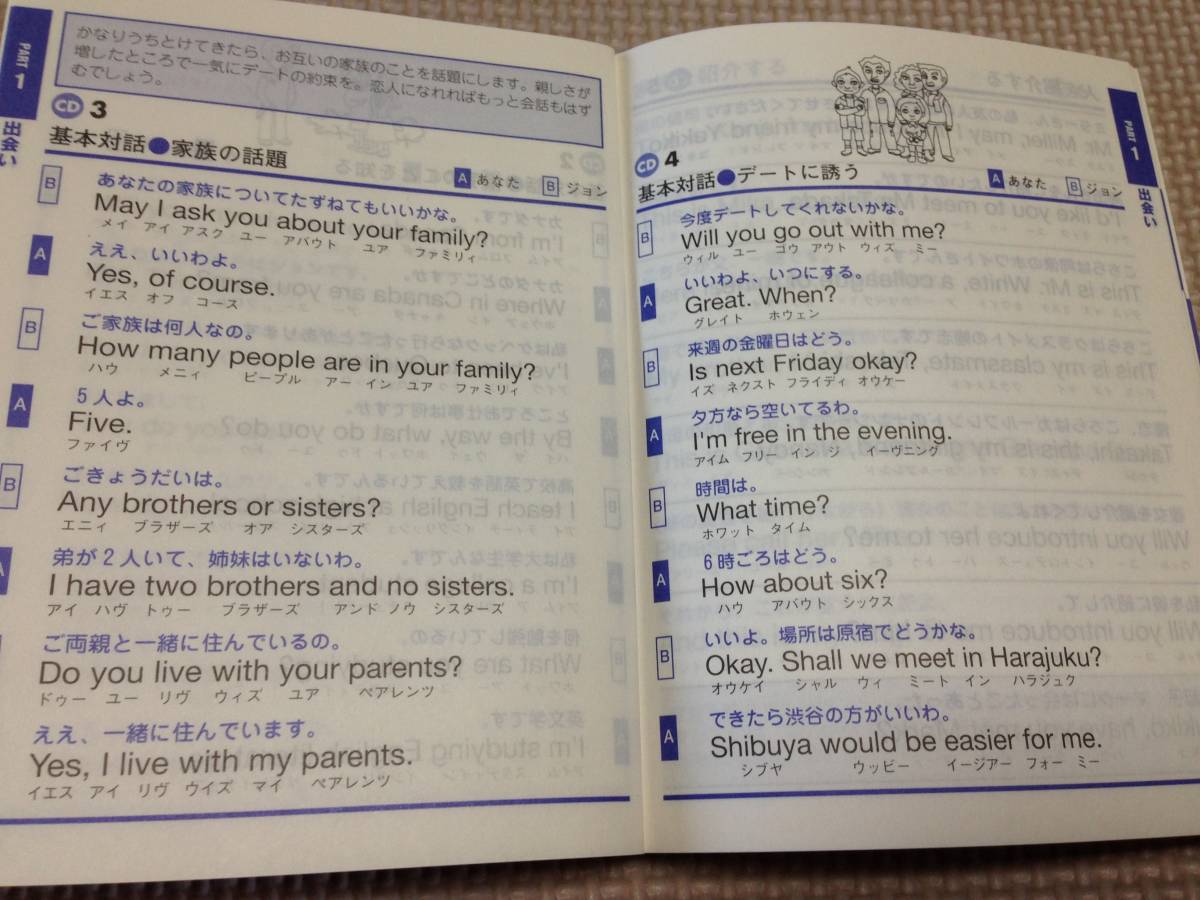 PART 1
出会い
かなりうちとけてきたら、お互いの家族のことを話題にします。親しさが
増したところで一気にデートの約束を。恋人になれればもっと会話もはず
むでしょう。
CD 3
基本対話●家族の話題
A あなた B ジョン
B あなたの家族についてたずねてもいいかな。
May I ask you about your family?
メイ アイ アスク ユー アバウト ユア ファミリィ
A ええ、いいわよ。
Yes, of course.
イエス オフ コース
B ご家族は何人なの。
How many people are in your family?
ハウ メニィ ピープル アー イン ユア ファミリィ
A 5人よ。
Five.
ファイヴ
B ごきょうだいは。
Any brothers or sisters?
エニィ ブラザーズ オア シスターズ
A 弟が2人いて、姉妹はいないわ。
I have two brothers and no sisters.
アイ ハヴ トゥー ブラザーズ アンド ノウ シスターズ
ご両親と一緒に住んでいるの。
Do you live with your parents?
ドゥー ユー リヴ ウィズ ユア ペアレンツ
ええ、一緒に住んでいます。
Yes, I live with my parents.
イエス アイ リヴ ウイズ マイ ペアレンツ
PART 1
出会い
CD 4
基本対話●デートに誘う
A あなた B ジョン
B 今度デートしてくれないかな。
Will you go out with me?
ウィル ユー ゴウ アウト ウィズ ミー
A いいわよ、いつにする。
Great. When?
グレイト ホウェン
B 来週の金曜日はどう。
Is next Friday okay?
イズ ネクスト フライディ オウケー
A 夕方なら空いてるわ。
I'm free in the evening.
アイム フリー イン ジ イーヴニング
B 時間は。
What time?
ホワット タイム
A 6時ごろはどう。
How about six?
ハウ アバウト シックス
B いいよ。場所は原宿でどうかな。
Okay. Shall we meet in Harajuku?
オウケイ シャル ウィ ミート イン ハラジュク
A できたら渋谷の方がいいわ。
Shibuya would be easier for me.
シブヤ ウッビー イージアー フォー ミー